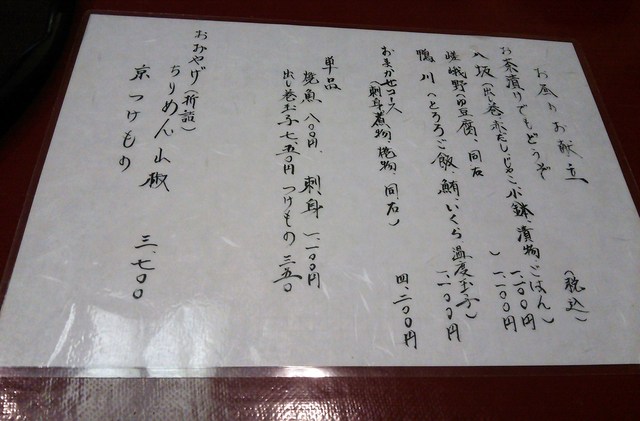 お昼のお献立 (税込)
お茶漬けでもどうぞ
八坂(出し巻、赤だし、じゃこ、小鉢、漬物、ごはん) 一、一〇〇円
嵯峨野(田豆腐、同右) 一、一〇〇円
鴨川(とろろご飯、鮪、いくら、温度玉子) 一、一〇〇円
おまかせコース
(刺身、煮物、焼物、同右) 四、二〇〇円
単品
焼魚 八〇〇円 刺身 一、一〇〇円
出し巻玉子 七、五〇円 つけもの 三五〇
おみやげ(折詰)
ちりめん山椒
京つけもの 三、七〇〇